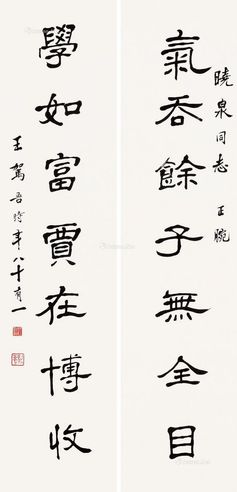 曉泉同志 正腕
氣吞餘子無全目
學如富賈在博收
王駕吾時年八十有一